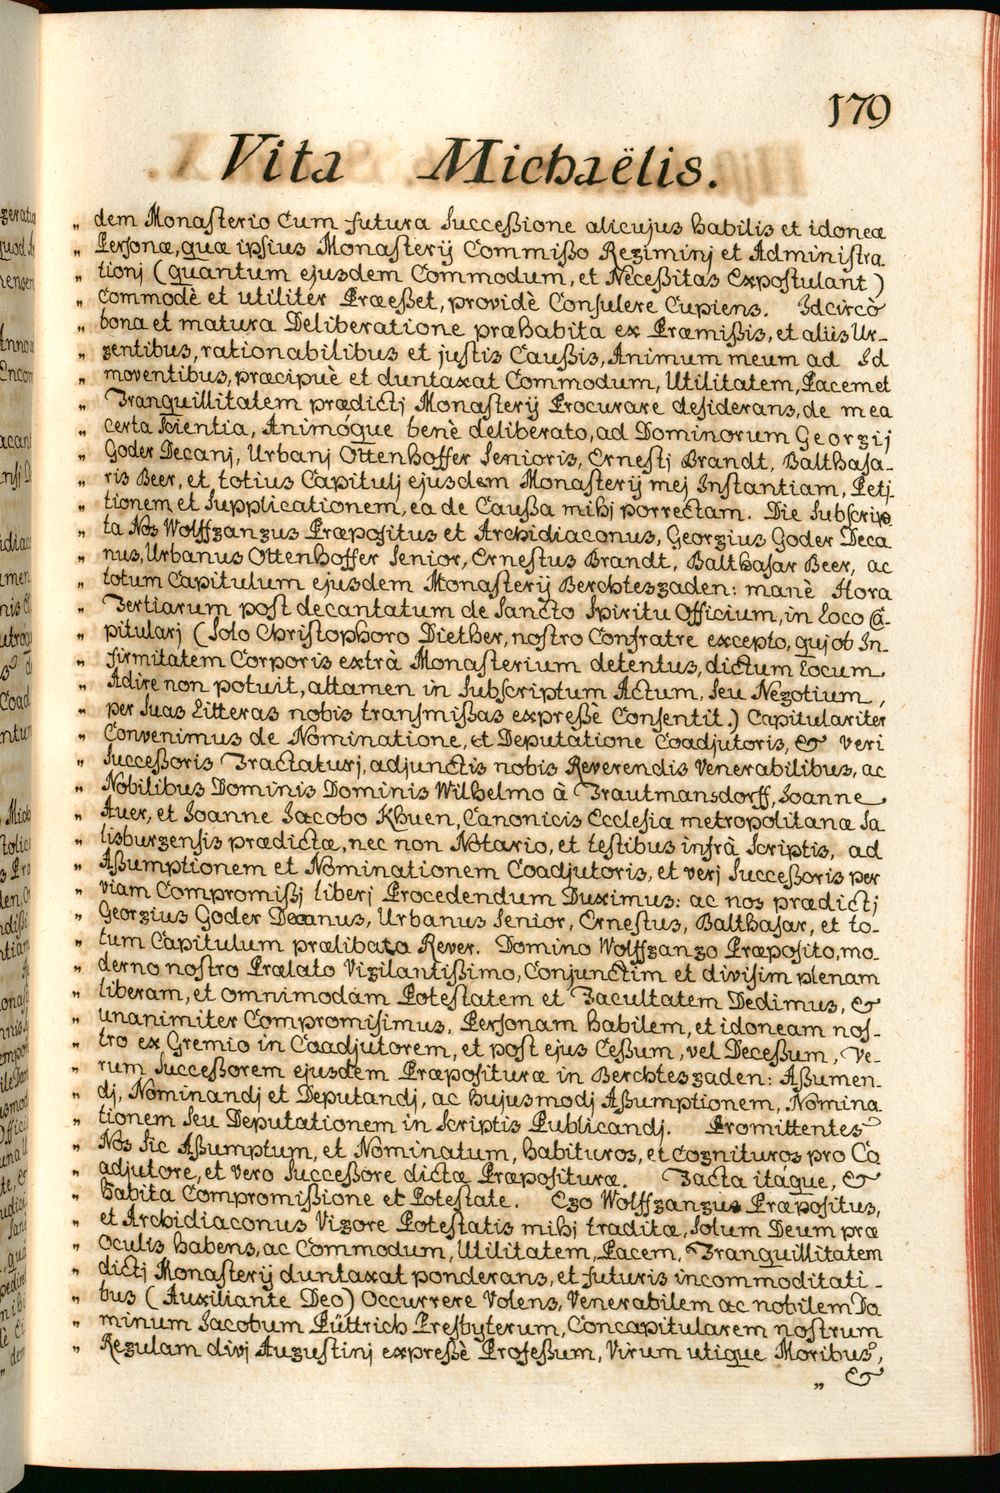 179
Vita Michaëlis.
„ dem Monasterio Cum futura Successione alicujus habilis et idoneæ
„ Personæ, quæ ipsius Monasterij Commisso Regiminj et Administra
„ tionj (quantum ejusdem Commodum, et Necessitas Expostulant)
„ Commodè et utiliter Præesset, providè Consulere Cupiens. Idcircò
„ bona et matura Deliberatione præhabita ex Præmissis, et aliis Ur-
„ gentibus, rationabilibus et justis Caussis, Animum meum ad Id
„ moventibus, præcipuè et duntaxat Commodum, Utilitatem, Pacem et
„ Tranquillitatem prædictj Monasterij Procurare desiderans, de mea
„ certa Scientia, Animóque benè deliberato, ad Dominorum Georgij
„ Goder Decanj, Urbanj Ottenhoffer Senioris, Ernestj Brandt, Balthasa-
„ ris Beer, et totius Capitulj ejusdem Monasterij mej Instantiam, Peti
„ tionem et Supplicationem, ea de Caussa mihj porrectam. Die Subscrip
„ ta Nos Wolffgangus Præpositus et Archidiaconus, Georgius Goder Deca
„ nus, Urbanus Ottenhoffer Senior, Ernestus Brandt, Balthasar Beer, ac
„ totum Capitulum ejusdem Monasterij Berchtesgaden: manè Hora
„ Tertiarum post decantatum de Sancto Spiritu Officium, in Loco Ca-
„ pitularj (Solo Christophoro Diether, nostro Confratre excepto, quj ob In-
„ firmitatem Corporis extrà Monasterium detentus, dictum Locum
„ Adire non potuit, attamen in Subscriptum Actum, Seu Negotium,
„ per Suas Litteras nobis transmissas expressè Consentit.) Capitulariter
„ Convenimus de Nominatione, et Deputatione Coadjutoris, & veri
„ Successoris Tractaturj, adjunctis nobis Reverendis Venerabilibus, ac
„ Nobilibus Dominis Dominis Wilhelmo à Trautmansdorff, Joanne
„ Auer, et Joanne Jacobo Khuen, Canonicis Ecclesiæ metropolitanæ Sa
„ lisburgensis prædictæ, nec non Notario, et testibus infrà Scriptis, ad
„ Assumptionem et Nominationem Coadjutoris, et verj Successoris per
„ viam Compromissj liberj Procedendum Duximus: ac nos prædictj
„ Georgius Goder Decanus, Urbanus Senior, Ernestus, Balthasar, et to-
„ tum Capitulum prælibato Rever. Domino Wolffgango Præposito, mo-
„ derno nostro Prælato Vigilantissimo, Conjunctim et divisim plenam
„ liberam, et omnimodam Potestatem et Facultatem Dedimus, &
„ unanimiter Compromisimus, Personam habilem, et idoneam nos-
„ tro ex Gremio in Coadjutorem, et post ejus Cessum, vel Decessum, Ve-
„ rum Successorem ejusdem Præposituræ in Berchtesgaden: Assumen-
„ dj, Nominandj et Deputandj, ac hujusmodj Assumptionem, Nomina
„ tionem Seu Deputationem in Scriptis Publicandj. Promittentes
„ Nos Sic Assumptum, et Nominatum, habituros, et cognituros pro Co
„ adjutore, et vero Successore dictæ Præposituræ. Facta itáque, &
„ habita Compromissione et Potestate. Ego Wolffgangus Præpositus,
„ et Archidiaconus Vigore Potestatis mihj traditæ, Solum Deum præ
„ oculis habens, ac Commodum, Utilitatem, Pacem, Tranquillitatem
„ dictj Monasterij duntaxat ponderans, et futuris incommoditati-
„ bus (Auxiliante Deo) Occurrere Volens, Venerabilem ac nobilem Do
„ minum Jacobum Püttrich Presbyterum, Concapitularem nostrum
„ Regulam divj Augustinj expressè Professum, Virum utique Moribus,
„ &